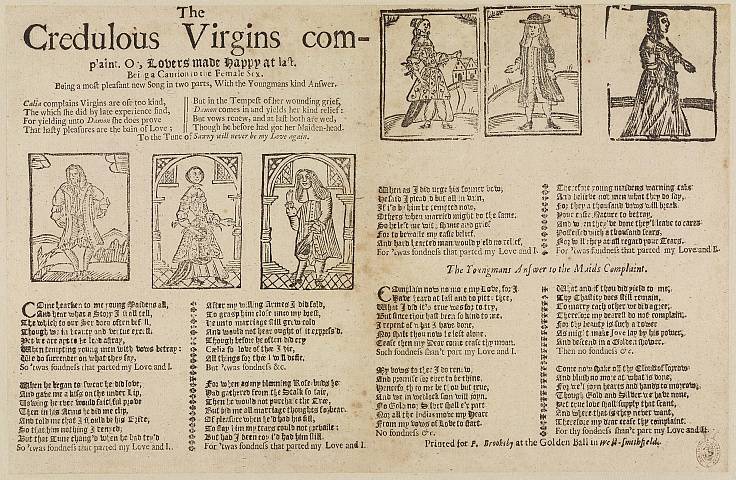 The
Credulous Virgins com-
plaint. Or, Lovers made Happy at last.
Being a Caution to the Female Sex.
Being a most pleasant new Song in two parts, With the Youngmans kind Answer.
Cælia complains Virgins are oft too kind,
The which she did by late experience find,
For yielding unto Damon she does prove
That hasty pleasures are the bain of Love;
But in the Tempest of her wounding grief,
Damon comes in and yields her kind relief:
But vows renew, and at last both are wed,
Though he before had got her Maiden-head.
To the Tune of Sawny will never be my Love again.
Come hearken to me young Maidens all,
And hear what a Story I shall tell,
The which to our Sex does often befall,
Though we in beauty and vertue excell.
Yet we are apt to be led astray,
When tempting young men with vows betray:
We do surrender on what they say,
So 'twas fondness that parted my Love and I.
When he began to swear he did love,
And gave me a kiss on the under lip,
Vowing he ever would faithful prove
Then in his Arms he did me clip,
And told me that I should be his Bride,
So that him nothing I denyed;
But that Tune chang'd when he had try'd
So 'twas fondness that parted my Love and I.
After my willing Armes I did fold,
To grasp him close unto my brest,
He unto marriage still grew cold
And would not hear ought of it express'd,
Though before he often did cry
Cælia for love of thee I die,
All things for thee I will defie,
But 'twas fondness &c.
For when as my blooming Rose buds he
Had gathered from the Stalk so fair,
Then he would not purchase the Tree,
But bid me all marriage thoughts forbear.
Of pleasure when he'd had his fill,
To stay him my tears could not prevaile:
But had I been coy I'd had him still.
For 'twas fondness that parted my Love and I.
When as I did urge his former vow,
He said I plead'd but all in vain,
If I'd by him be tempted now,
Others when married might do the same.
So he left me with shame and grief
For to bewaile my easie belief,
And hard hearted man would yield no relief,
For 'twas fondness that parted my Love and I.
Therefore young maidens warning take
And believe not men what they do say,
For they a thousand vows will break
Your easie Nature to betray,
And when they've done they'll leave to cares
Possessed with a thousand fears,
Nor will they at all regard your Tears.
For 'twas fondness that parted my Love and I.
The Youngmans Answer to the Maids Complaint.
Complain now no more my Love, for I
Have heard at last and do pitty thee,
What I did it's true was for to try,
But since thou hast been so kind to me
I repent of what I have done,
Nor shalt thou now be left alone.
Cease then my Dear come cease thy moan.
Such fondness shan't part my Love and I.
My vows to thee I do renew,
And promise for ever to be thine,
Henceforth to me be thou but true,
And we in wedlock soon will joyn.
No Gold nor Silver shall e're part
Nor all the Indies move my Heart
From my vows of Love to start.
No fondness &c.
What and if thou did yield to me;
Thy Chastity does still remain,
To marry each other we did agree,
Therefore my dearest do not complain.
For thy beauty is such a power
As might make Jove lay by his power,
And descend in a Golden shower.
Then no fondness &c.
Come now shake off the Clouds of sorrows
And blush no more at what is done,
For we'l joyn hearts and hands to morrow;
Though Gold and Silver we have none,
Yet true love shall supply that scant,
And where that is they never want,
Therefore my dear cease thy complaint.
For thy fondness shan't part my Love and I.
Printed for P. Brooksby at the Golden Ball in West-smithfield.